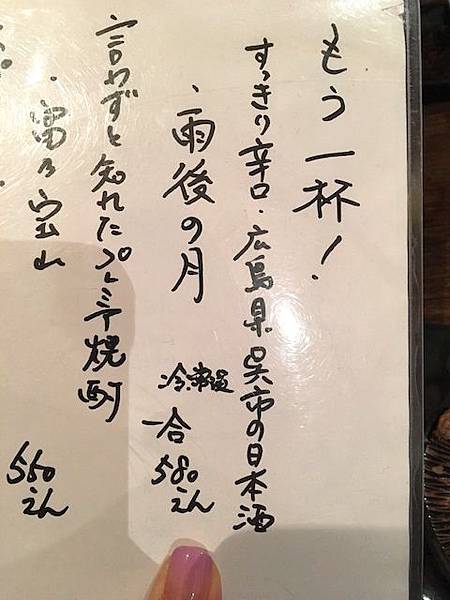 もう一杯!
すっきり辛口・広島県呉市の日本酒
・雨後の月
冷・常温
一合
580えん
言わずと知れたプレミア焼酎
・富乃宝山
550えん